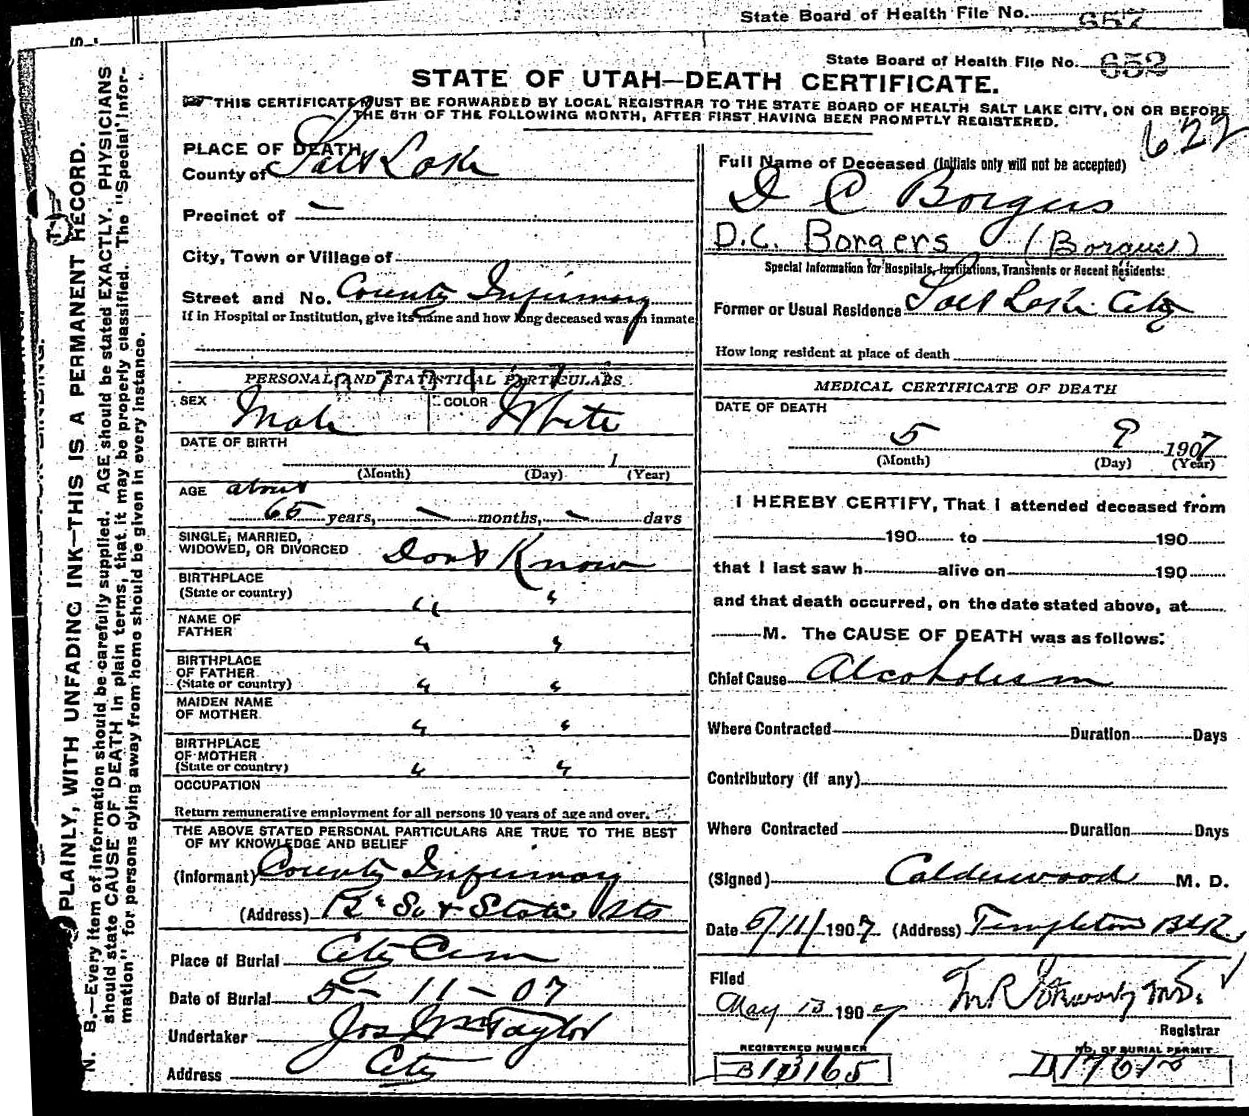 State Board of Health File No. 657
State Board of Health File No. 652
STATE OF UTAH—DEATH CERTIFICATE.
THIS CERTIFICATE MUST BE FORWARDED BY LOCAL REGISTRAR TO THE STATE BOARD OF HEALTH SALT LAKE CITY, ON OR BEFORE
THE 5TH OF THE FOLLOWING MONTH, AFTER FIRST HAVING BEEN PROMPTLY REGISTERED.
622
PLACE OF DEATH
County of Salt Lake
Precinct of —
City, Town or Village of
Street and No. County Infirmary
If in Hospital or Institution, give its name and how long deceased was an inmate
PERSONAL AND STATISTICAL PARTICULARS
SEX Male COLOR White
DATE OF BIRTH
1
(Month) (Day) (Year)
AGE about
65 years, — months, — days
SINGLE, MARRIED,
WIDOWED, OR DIVORCED Dont Know
BIRTHPLACE
(State or country) " "
NAME OF
FATHER " "
BIRTHPLACE
OF FATHER
(State or country) " "
MAIDEN NAME
OF MOTHER " "
BIRTHPLACE
OF MOTHER
(State or country) " "
OCCUPATION
Return remunerative employment for all persons 10 years of age and over.
THE ABOVE STATED PERSONAL PARTICULARS ARE TRUE TO THE BEST
OF MY KNOWLEDGE AND BELIEF
(Informant) County Infirmary
(Address) & State Sts
Place of Burial City Cem
Date of Burial 5 - 11 - 07
Undertaker Jos Wm Taylor
Address City
Full Name of Deceased (Initials only will not be accepted)
D C Borgers
D.C. Borgers (Borgus)
Special Information for Hospitals, Institutions, Transients or Recent Residents:
Former or Usual Residence Salt Lake City
How long resident at place of death
MEDICAL CERTIFICATE OF DEATH
DATE OF DEATH
5 9 1907
(Month) (Day) (Year)
I HEREBY CERTIFY, That I attended deceased from
190 to 190
that I last saw h alive on 190
and that death occurred, on the date stated above, at
M. The CAUSE OF DEATH was as follows:
Chief Cause Alcoholism
Where Contracted Duration Days
Contributory (if any)
Where Contracted Duration Days
(Signed) Calderwood M. D.
Date 5/11/1907 (Address) Templeton Bldg
Filed
May 13 1907
Registrar
REGISTERED NUMBER NO. OF BURIAL PERMIT
B13165 D1761
N. B.—Every item of information should be carefully supplied. AGE should be stated EXACTLY. PHYSICIANS
should state CAUSE OF DEATH in plain terms, that it may be properly classified. The "Special Infor-
mation" for persons dying away from home should be given in every instance.
PLAINLY, WITH UNFADING INK—THIS IS A PERMANENT RECORD.